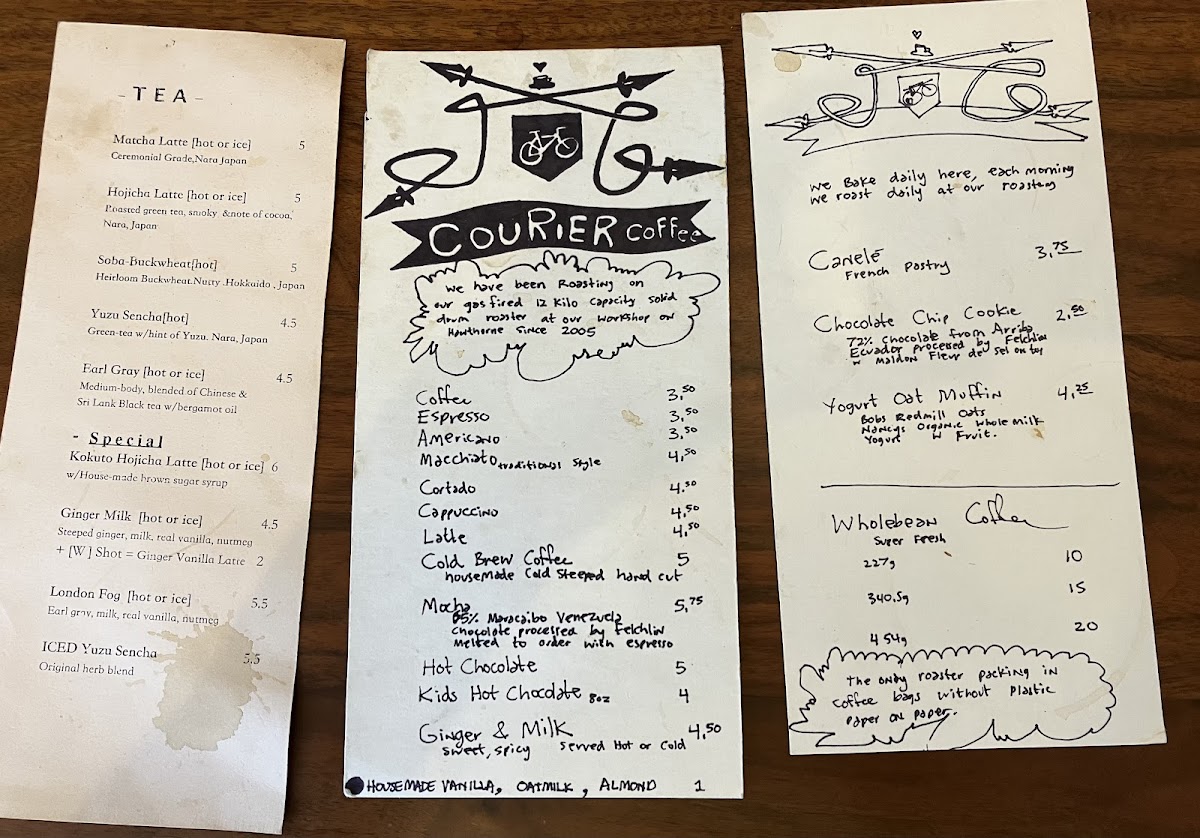 - TEA -
Matcha Latte [hot or ice] 5
Ceremonial Grade,Nara Japan
Hojicha Latte [hot or ice] 5
Roasted green tea, smoky &note of cocoa,
Nara, Japan
Soba-Buckwheat[hot] 5
Heirloom Buckwheat.Nutty .Hokkaido , Japan
Yuzu Sencha[hot] 4.5
Green-tea w/hint of Yuzu. Nara, Japan
Earl Gray [hot or ice] 4.5
Medium-body, blended of Chinese &
Sri Lank Black tea w/bergamot oil
- Special
Kokuto Hojicha Latte [hot or ice] 6
w/House-made brown sugar syrup
Ginger Milk [hot or ice] 4.5
Steeped ginger, milk, real vanilla, nutmeg
+ [W] Shot = Ginger Vanilla Latte 2
London Fog [hot or ice] 5.5
Earl gray, milk, real vanilla, nutmeg
ICED Yuzu Sencha 5.5
Original herb blend
COURIER COFFEE
we have been Roasting on
our gas fired 12 Kilo capacity solid
drum roaster at our workshop on
Hawthorne since 2005
Coffee 3.50
Espresso 3.50
Americano 3.50
Macchiato traditional style 4.50
Cortado 4.50
Cappuccino 4.50
Latte 4.50
Cold Brew Coffee 5
housemade cold steeped hand cut
Mocha 5.75
65% Maracaibo Venezuela
chocolate processed by Felchlin
melted to order with espresso
Hot Chocolate 5
Kids Hot Chocolate 8oz 4
Ginger & Milk 4.50
sweet, spicy served Hot or Cold
HOUSEMADE VANILLA, OATMILK, ALMOND 1
we Bake daily here, each morning
we roast daily at our roastery
Canelé 3.75
French Pastry
Chocolate Chip Cookie 2.50
72% chocolate from Arriba
Ecuador processed by Felchlin
w Maldon Fleur del sel on top
Yogurt Oat Muffin 4.25
Bobs Redmill Oats
Nancys Organic Whole Milk
Yogurt W Fruit.
Wholebean Coffee
Super Fresh
227g 10
340.5g 15
454g 20
The only roaster packing in
coffee bags without plastic
paper on paper.